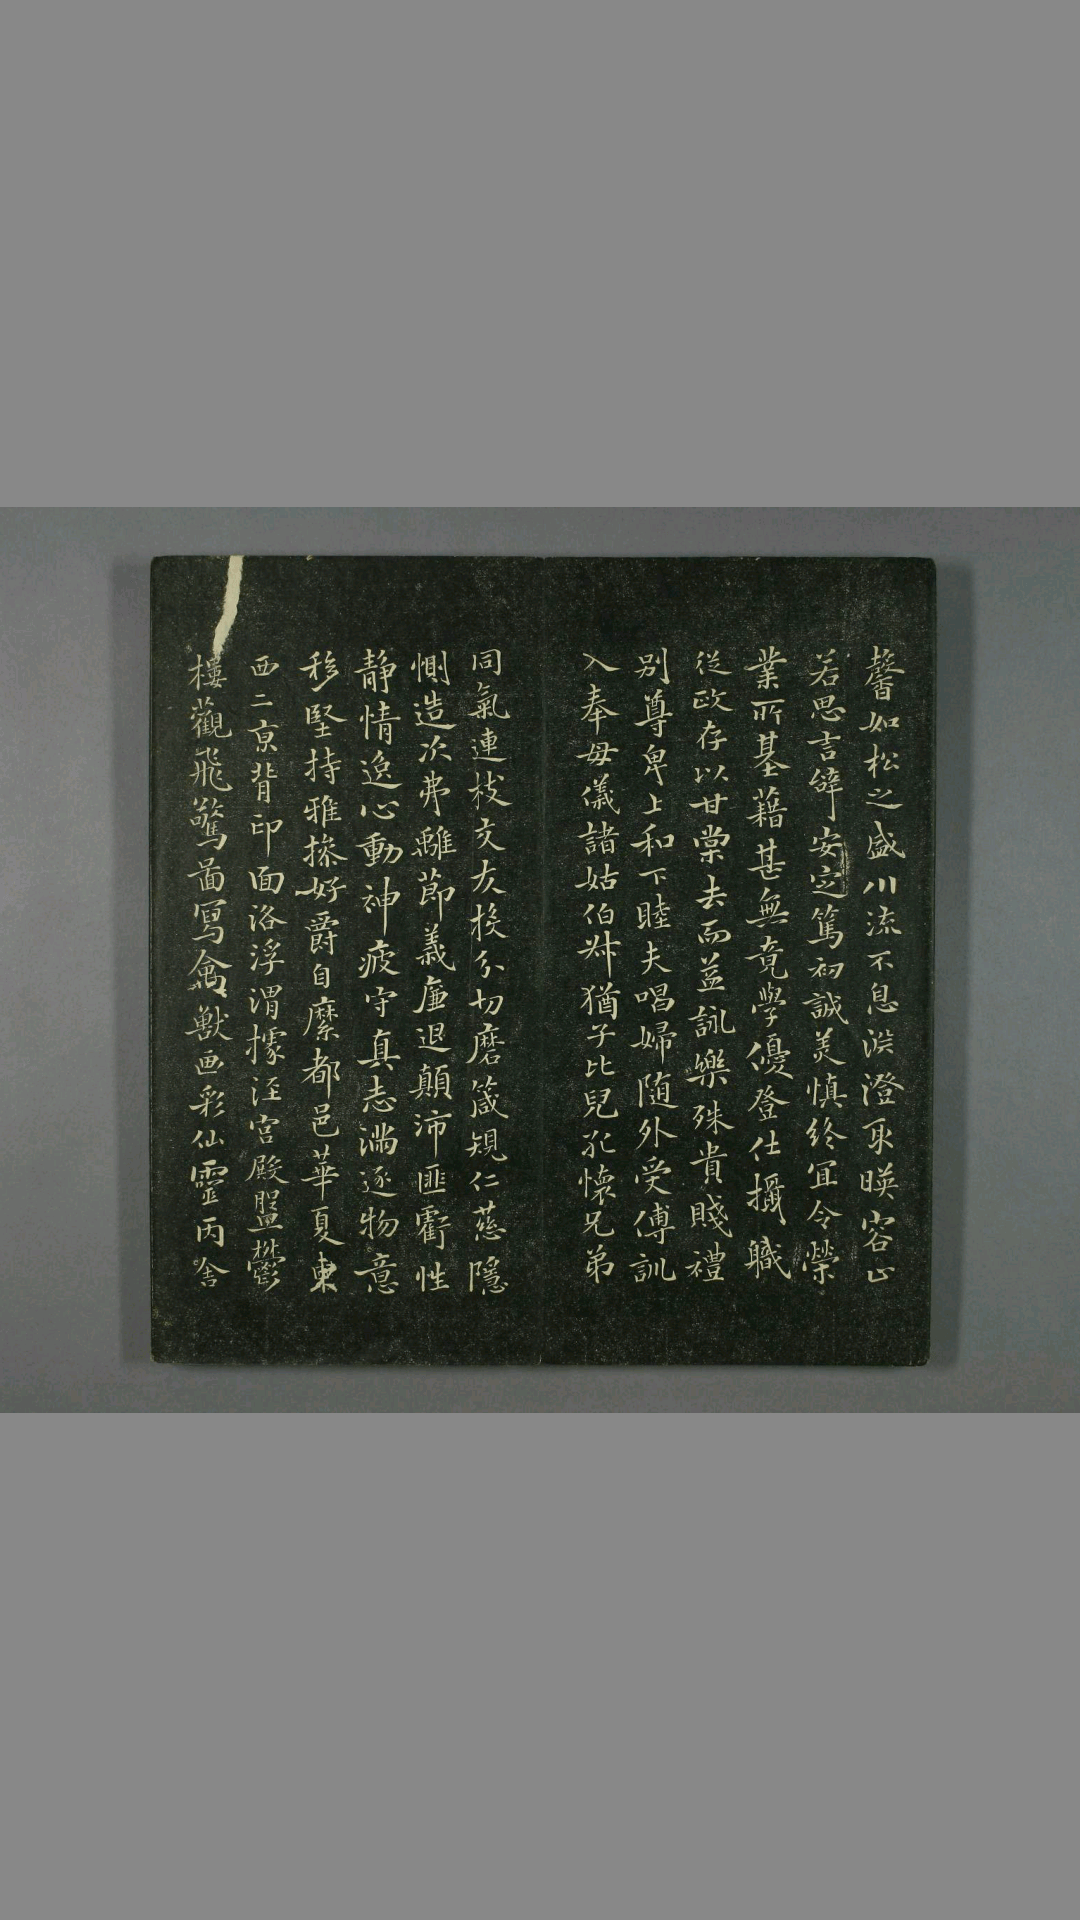 馨如松之盛川流不息淵澄取暎容止
若思言辭安定篤初誠美慎終宜令榮
業所基藉甚無竟學優登仕攝職
從政存以甘棠去而益詠樂殊貴賤禮
別尊卑上和下睦夫唱婦随外受傅訓
入奉母儀諸姑伯叔猶子比兒孔懷兄弟
同氣連枝交友投分切磨箴規仁慈隱
惻造次弗離節義廉退顛沛匪虧性
静情逸心動神疲守真志滿逐物意
移堅持雅操好爵自縻都邑華夏東
西二京背邙面洛浮渭據涇宮殿盤欝
樓觀飛驚圖寫禽獸画彩仙靈丙舍